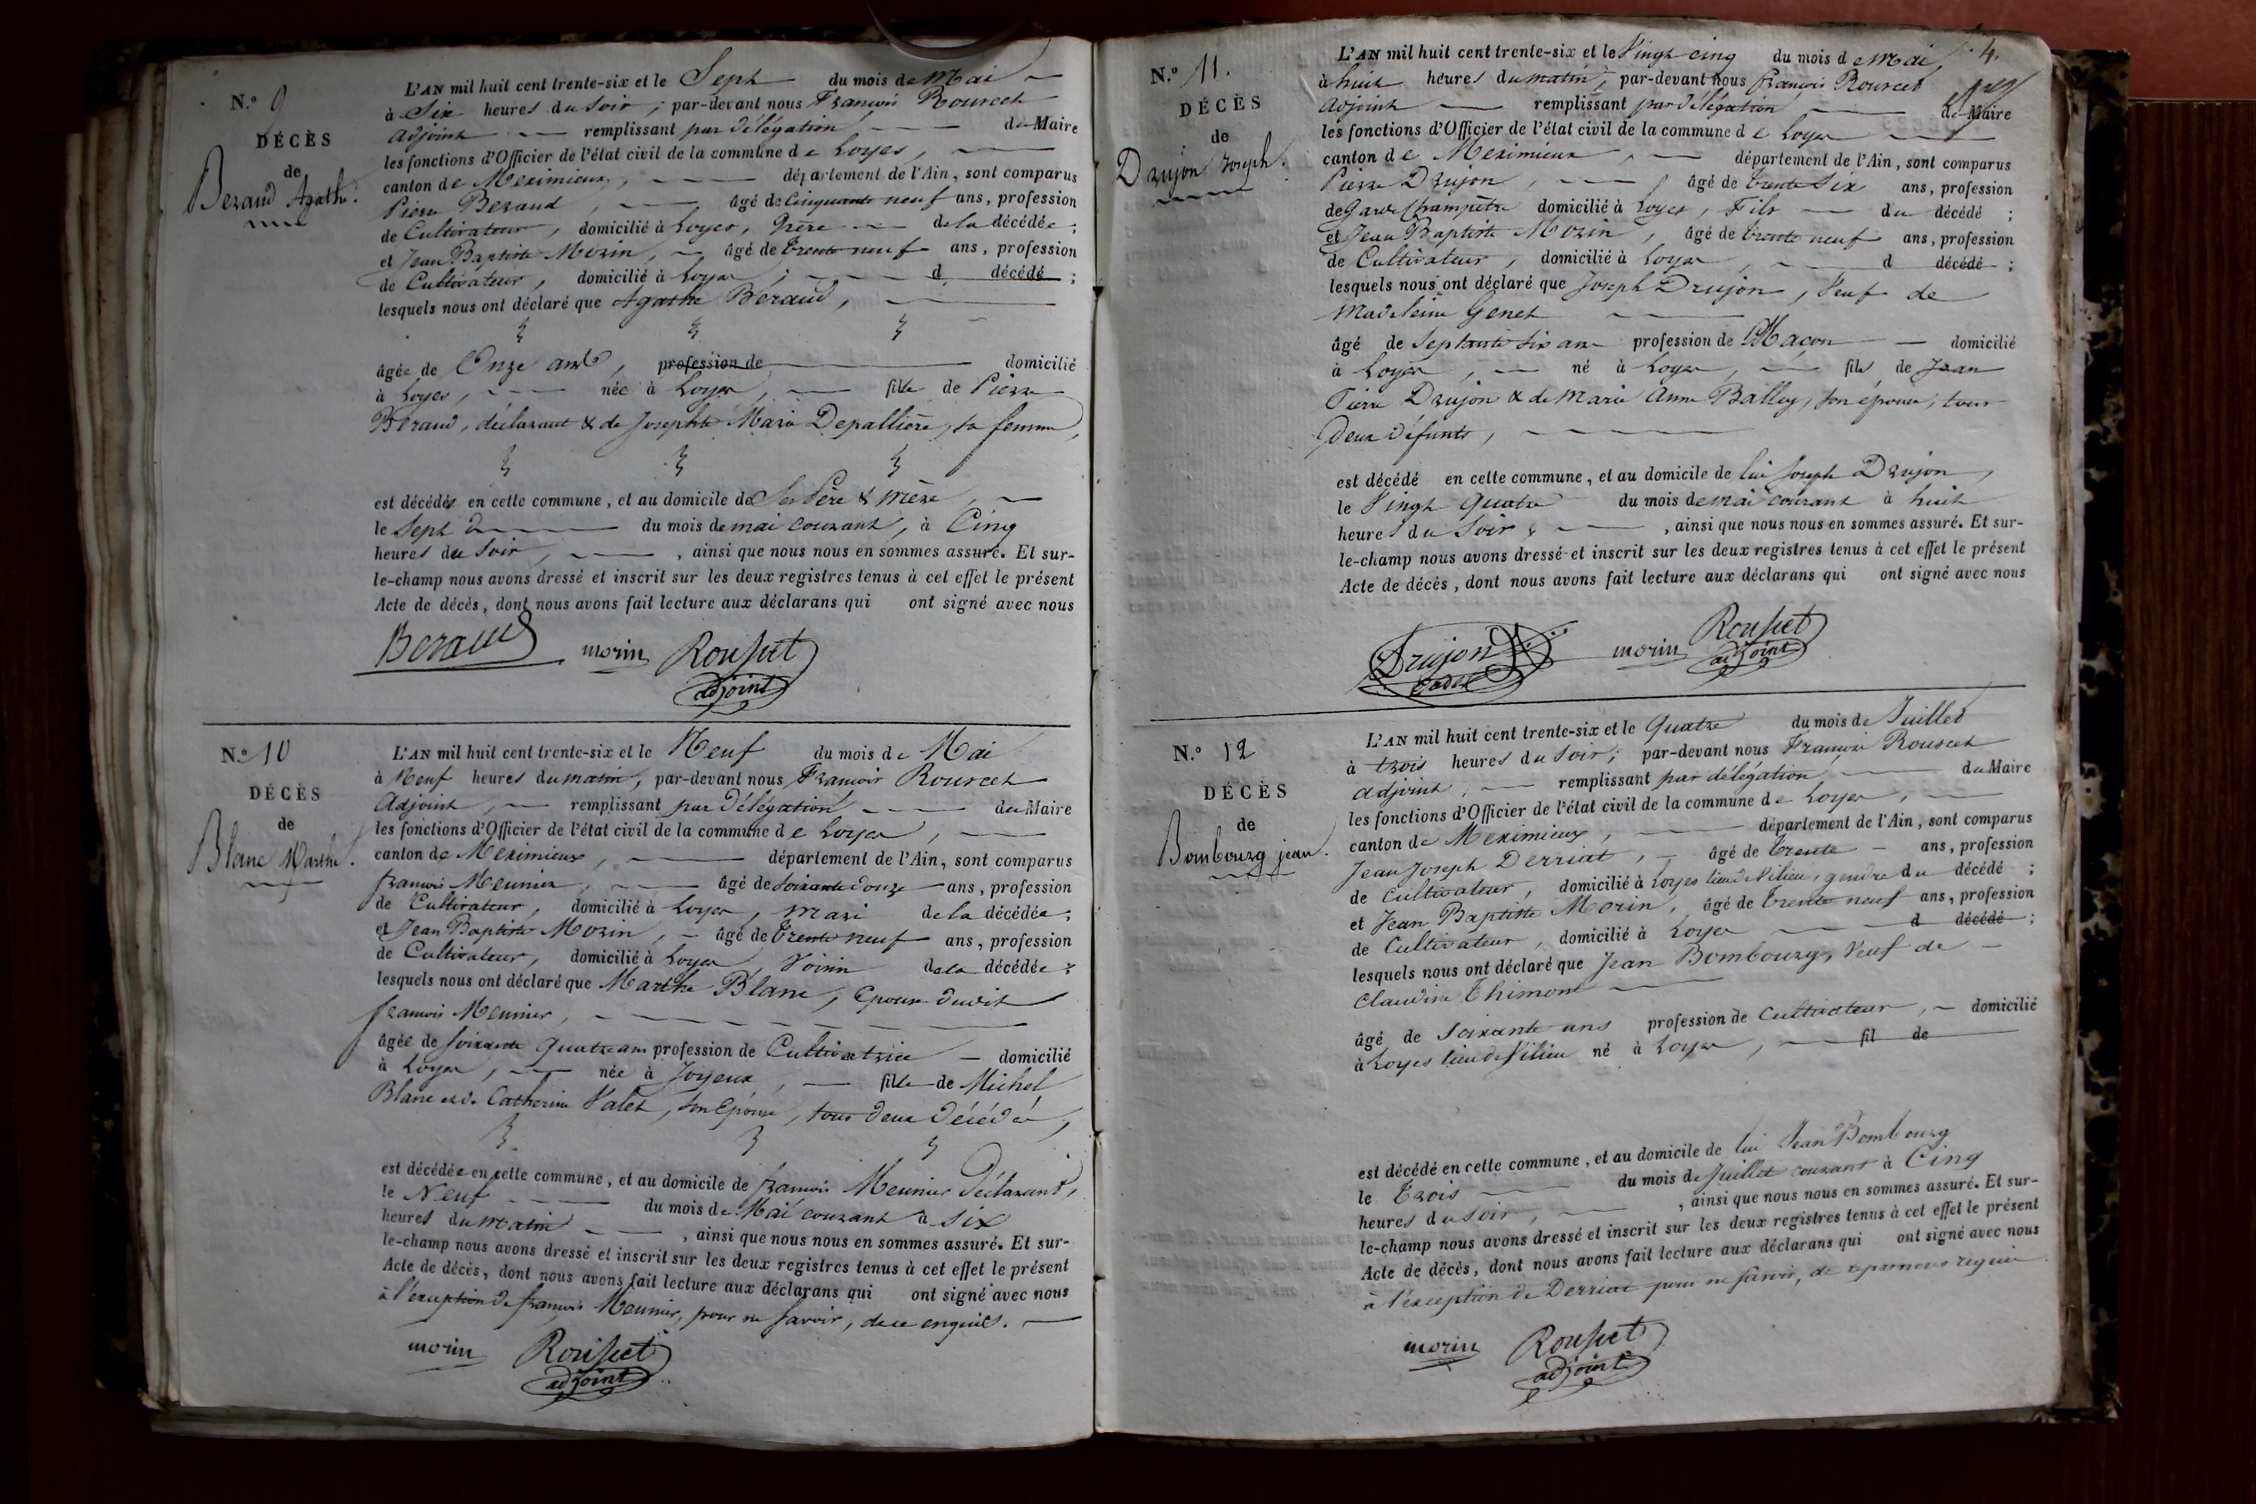 N.º 9
DÉCÈS
de
Beraud Agathe.
L'AN mil huit cent trente-six et le Sept du mois de Mai
à Six heures du soir, par-devant nous François Rousset
Adjoint remplissant par délégation du Maire
les fonctions d'Officier de l'état civil de la commune de Loyes,
canton de Meximieux, département de l'Ain, sont comparus
Pierre Beraud, âgé de Cinquante neuf ans, profession
de Cultivateur, domicilié à Loyes, Père de la décédée;
et Jean Baptiste Morin, âgé de trente neuf ans, profession
de Cultivateur, domicilié à Loyes, d décédé;
lesquels nous ont déclaré que Agathe Beraud,
âgée de Onze ans, profession de domicilié
à Loyes, née à Loyes, fille de Pierre
Beraud, déclarant & de Josephte Marie Depallière, sa femme,
est décédée en cette commune, et au domicile de Ses Père & mère,
le Sept du mois de mai courant, à Cinq
heures du Soir, ainsi que nous nous en sommes assuré. Et sur-
le-champ nous avons dressé et inscrit sur les deux registres tenus à cet effet le présent
Acte de décès, dont nous avons fait lecture aux déclarans qui ont signé avec nous
Beraud morin Rousset
adjoint
N.º 10
DÉCÈS
de
Blanc Marthe.
L'AN mil huit cent trente-six et le Neuf du mois de Mai
à Neuf heures du matin, par-devant nous François Rousset
Adjoint, remplissant par délégation du Maire
les fonctions d'Officier de l'état civil de la commune de Loyes,
canton de Meximieux, département de l'Ain, sont comparus
françois Meunier, âgé de Soixante douze ans, profession
de Cultivateur, domicilié à Loyes, mari de la décédée;
et Jean Baptiste Morin, âgé de trente neuf ans, profession
de Cultivateur, domicilié à Loyes, Voisin de la décédée;
lesquels nous ont déclaré que Marthe Blanc, Epouse dudit
françois Meunier,
âgée de soixante quatre ans profession de Cultivatrice domicilié
à Loyes, née à Joyeux, fille de Michel
Blanc et de Catherine Valet, son Epouse, tous deux décédés,
est décédée en cette commune, et au domicile de françois Meunier déclarant,
le Neuf du mois de Mai courant à six
heures du matin, ainsi que nous nous en sommes assuré. Et sur-
le-champ nous avons dressé et inscrit sur les deux registres tenus à cet effet le présent
Acte de décès, dont nous avons fait lecture aux déclarans qui ont signé avec nous
à l'exception de françois Meunier, pour ne savoir, de ce enquis.
morin Rousset
adjoint
4.
N.º 11.
DÉCÈS
de
Drujon Joseph.
L'AN mil huit cent trente-six et le Vingt cinq du mois de mai,
à huit heures du matin, par-devant nous françois Rousset
Adjoint remplissant par délégation du Maire
les fonctions d'Officier de l'état civil de la commune de Loyes
canton de Meximieux, département de l'Ain, sont comparus
Pierre Drujon, âgé de trente Six ans, profession
de Garde Champêtre domicilié à Loyes, Fils du décédé;
et Jean Baptiste Morin, âgé de trente neuf ans, profession
de Cultivateur, domicilié à Loyes, d décédé;
lesquels nous ont déclaré que Joseph Drujon, Veuf de
Madeleine Genet
âgé de Septante six ans profession de Maçon domicilié
à Loyes, né à Loyes, fils de Jean
Pierre Drujon & de Marie Anne Balley, son épouse, tous
Deux défunts,
est décédé en cette commune, et au domicile de lui Joseph Drujon,
le Vingt Quatre du mois de mai courant à huit
heures du Soir, ainsi que nous nous en sommes assuré. Et sur-
le-champ nous avons dressé et inscrit sur les deux registres tenus à cet effet le présent
Acte de décès, dont nous avons fait lecture aux déclarans qui ont signé avec nous
Drujon morin Rousset
adjoint
N.º 12
DÉCÈS
de
Bombourg jean.
L'AN mil huit cent trente-six et le Quatre du mois de Juillet
à trois heures du Soir; par-devant nous François Rousset
adjoint, remplissant par délégation du Maire
les fonctions d'Officier de l'état civil de la commune de Loyes,
canton de Meximieux, département de l'Ain, sont comparus
Jean Joseph Derriat, âgé de trente ans, profession
de Cultivateur, domicilié à Loyes lieu de Vilieu, gendre du décédé;
et Jean Baptiste Morin, âgé de trente neuf ans, profession
de Cultivateur, domicilié à Loyes d décédé;
lesquels nous ont déclaré que Jean Bombourg, Veuf de
Claudine Thimont
âgé de Soixante ans profession de Cultivateur, domicilié
à Loyes lieu de Vilieu né à Loyes, fil de
est décédé en cette commune, et au domicile de lui Jean Bombourg
le trois du mois de Juillet courant à Cinq
heures du Soir, ainsi que nous nous en sommes assuré. Et sur-
le-champ nous avons dressé et inscrit sur les deux registres tenus à cet effet le présent
Acte de décès, dont nous avons fait lecture aux déclarans qui ont signé avec nous
à l'exception de Derriat pour ne savoir, de ce par nous requis
morin Rousset
adjoint